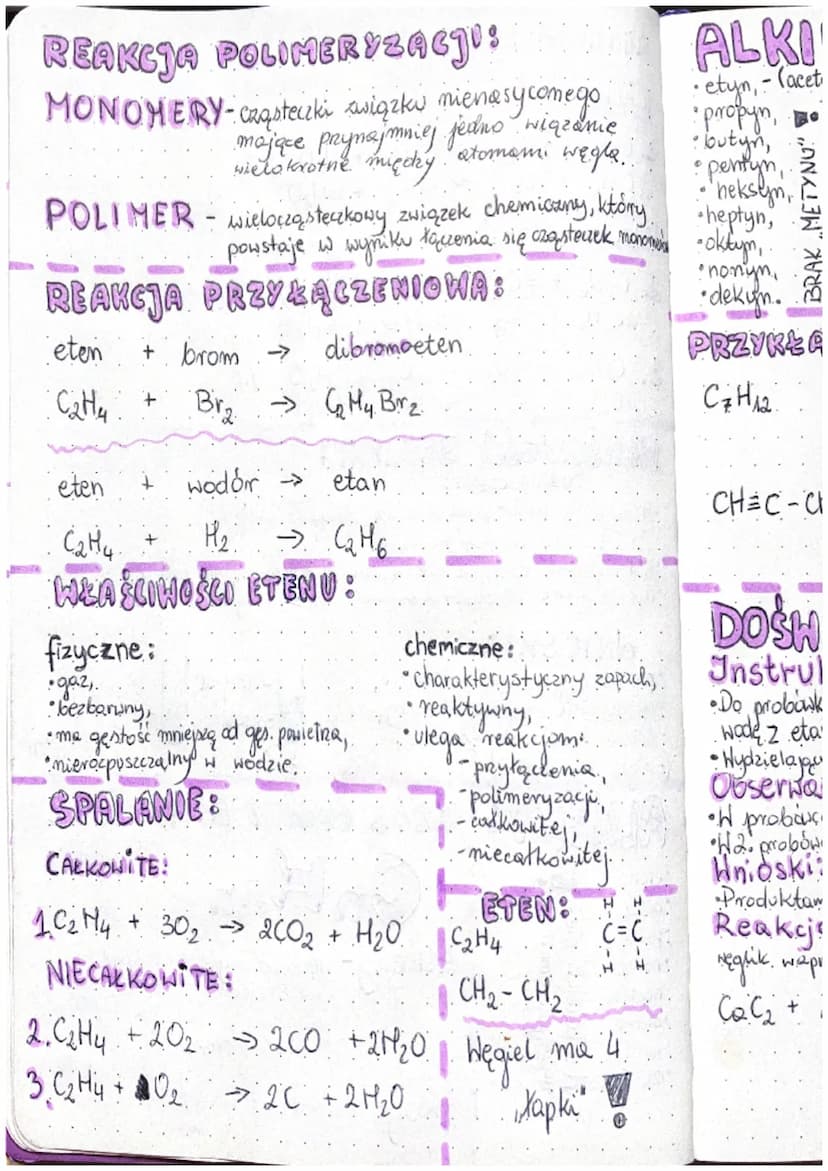 REAKCJA POLIMERYZACJI:
MONOMERY - cząsteczki związku nienasyconego
mające przynajmniej jedno wiązanie
wielokrotne między atomami węgla.
POLIMER - wielocząsteczkowy związek chemiczny, który
powstaje w wyniku łączenia się cząsteczek monomeru
REAKCJA PRZYŁĄCZENIOWA:
eten + brom → dibromoeten
C₂H₄ + Br₂ → C₂H₄Br₂
eten + wodór → etan
C₂H₄ + H₂ → C₂H₆
WŁAŚCIWOŚCI ETENU:
fizyczne:
• gaz,
• bezbarwny,
• ma gęstość mniejszą od gęs. powietrza,
• nierozpuszczalny w wodzie.
chemiczne:
• charakterystyczny zapach,
• reaktywny,
• ulega reakcjom:
- przyłączenia,
- polimeryzacji,
- całkowitej,
- niecałkowitej.
SPALANIE:
CAŁKOWITE:
1. C₂H₄ + 3O₂ → 2CO₂ + H₂O
NIECAŁKOWITE:
2. C₂H₄ + 2O₂ → 2CO + 2H₂O
3. C₂H₄ + O₂ → 2C + 2H₂O
ETEN:
C₂H₄
H H
C=C
H H
CH₂-CH₂
Węgiel ma 4
„łapki" !
ALKI
• etyn, - (acet
• propyn,
• butyn,
• pentyn,
• heksyn,
• heptyn,
• oktyn,
• nonyn,
• dekyn.
BRAK „METYNU" !
PRZYKŁA
C₇H₁₂
CH≡C-C
DOŚW
Instruk
• Do probówk
wodę z eta
• Wydzielając
Obserwa
• W probów
• W 2. probów
Wnioski:
• Produktam
Reakcja
węglik. wapn
CaC₂ +